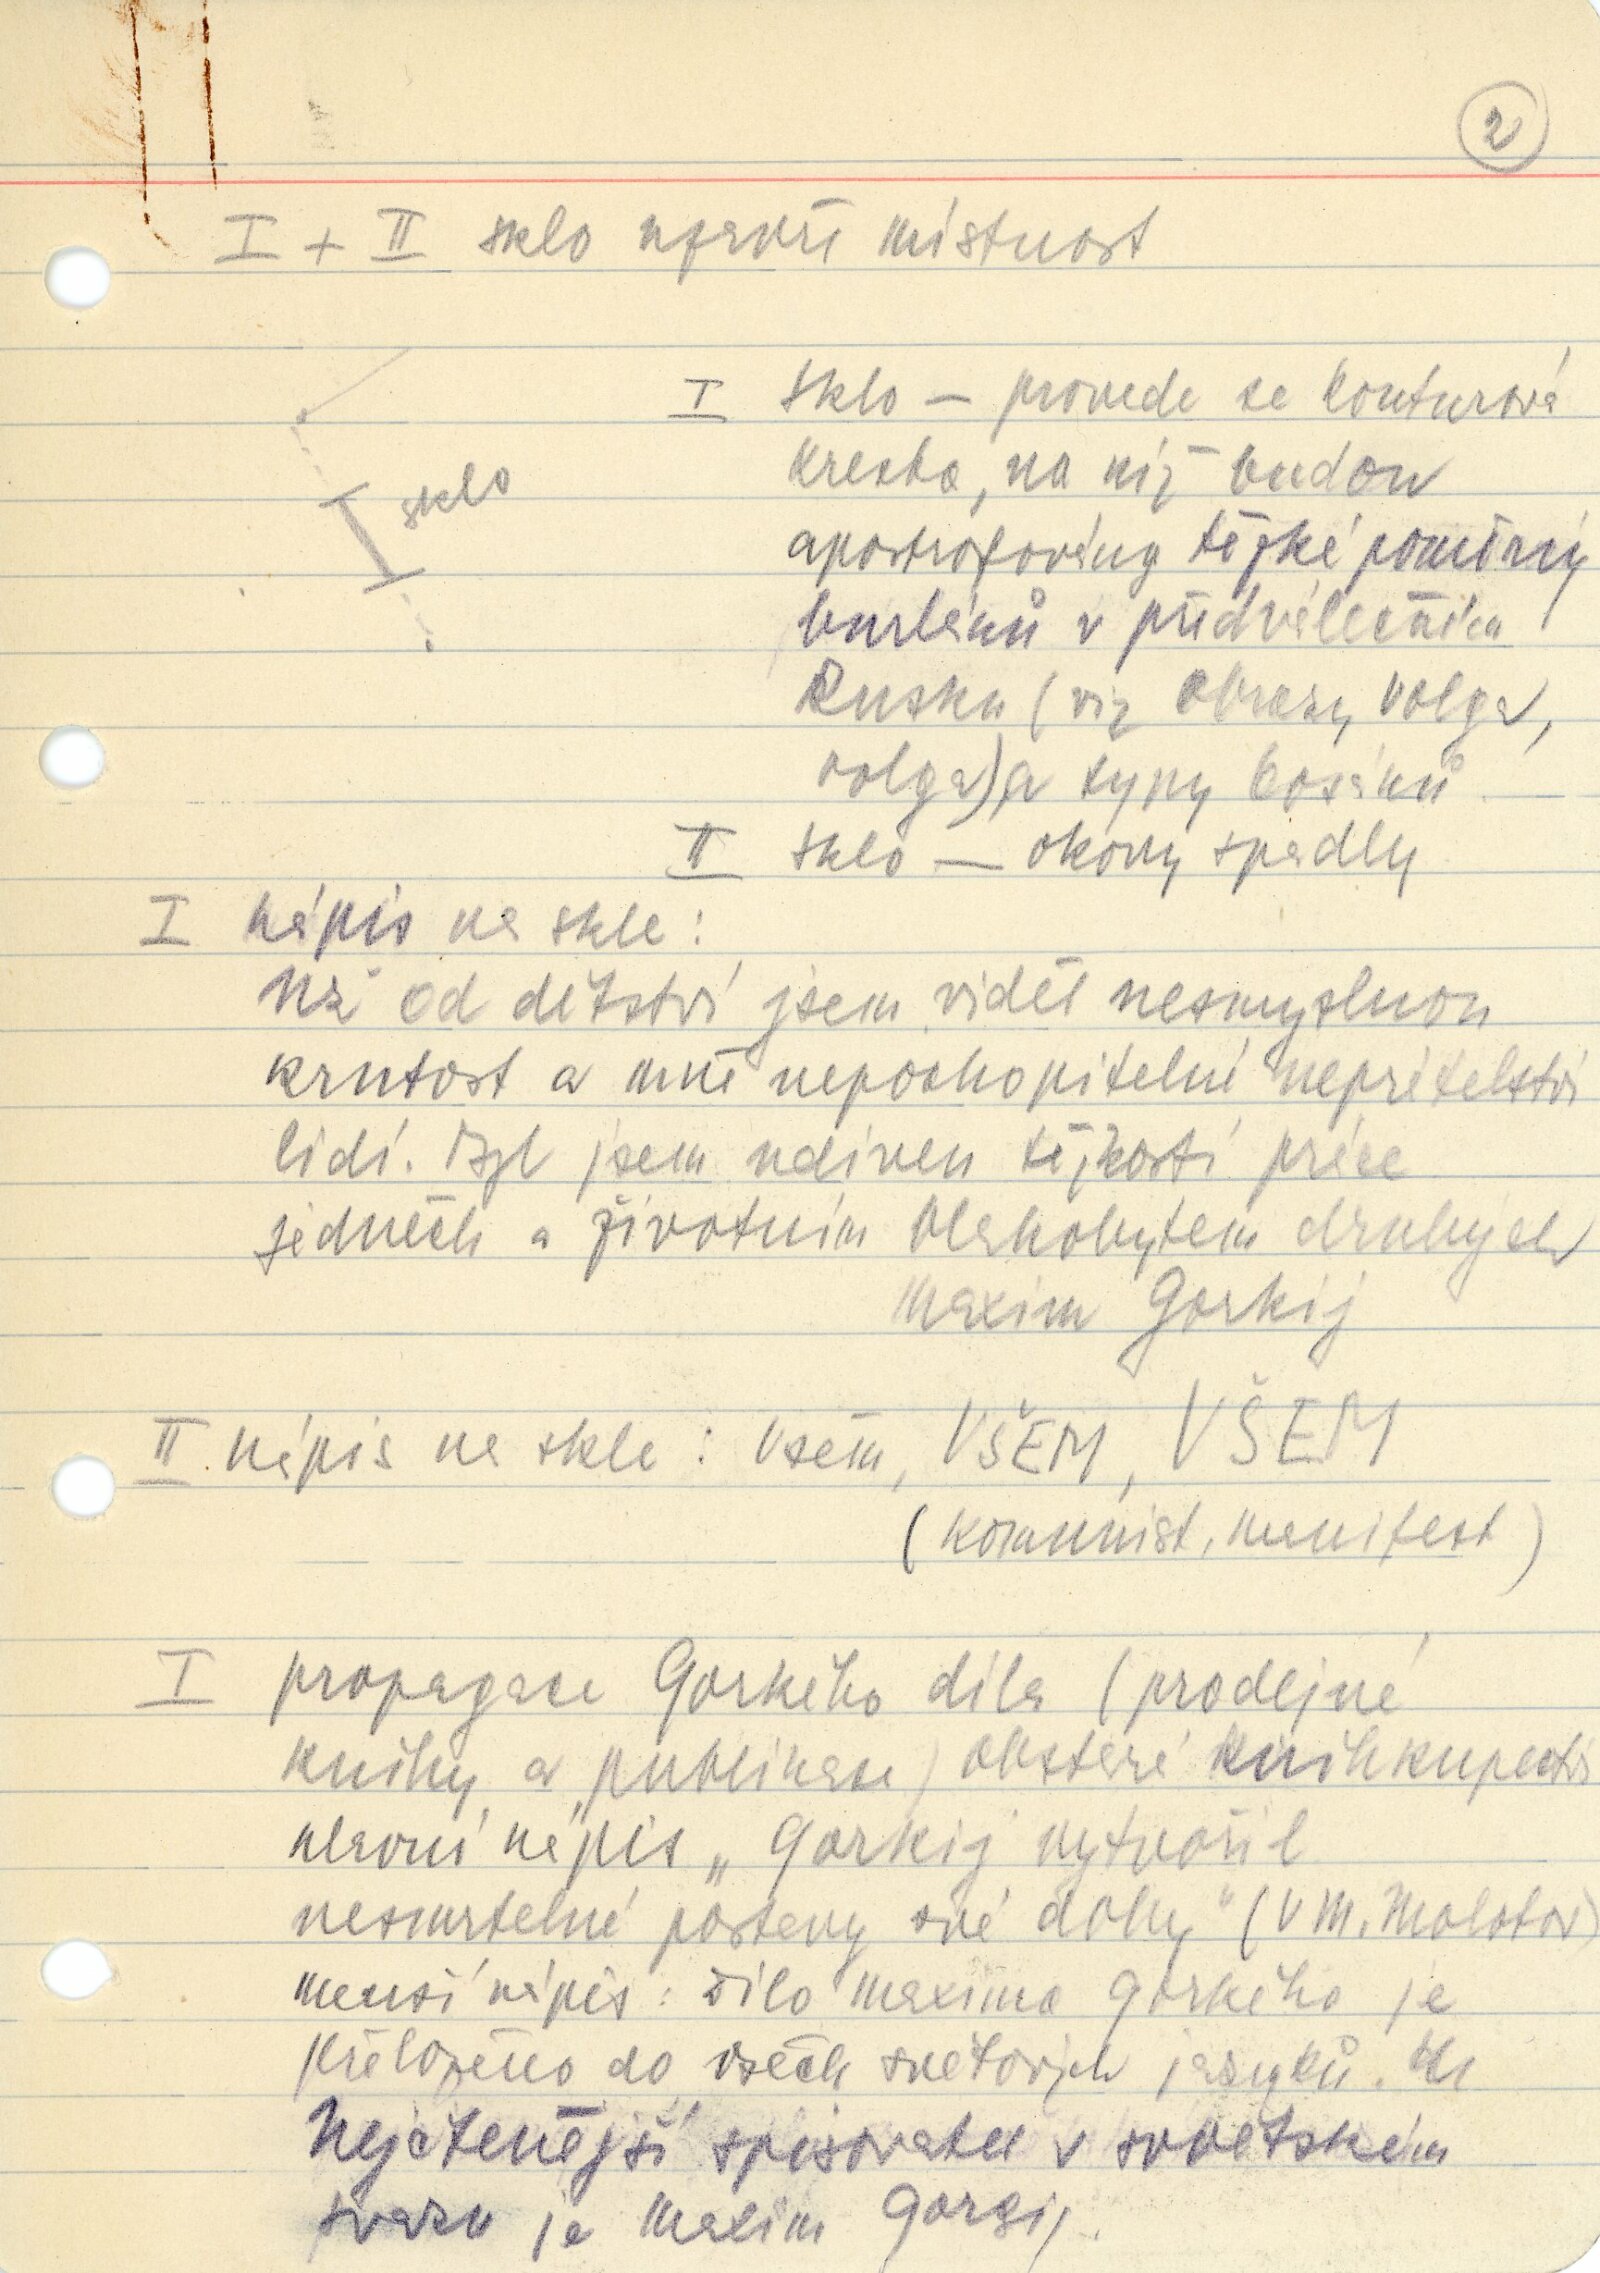 2
I + II sklo uzavře místnost
I sklo – provede se konturová
kresba, na niž budou
sklo
apostrofovány těžké poměry
burláků v předválečném
Rusku (viz obrazy Volga,
Volga) a typy bosáků
II sklo – okovy spadly
I nápis na skle:
Už od dětství jsem viděl nesmyslnou
krutost a mně nepochopitelné nepřátelství
lidí. Byl jsem udiven těžkostí práce
jedněch a životním blahobytem druhých
Maxim Gorkij
II nápis na skle: Všem, VŠEM, VŠEM
(komunist. manifest)
I propagace Gorkého díla (prodejné
knihy a publikace) obstará knihkupectví
hlavní nápis „Gorkij vytvořil
nesmrtelné postavy své doby" (V M. Molotov)
menší nápis: Dílo Maxima Gorkého je
přeloženo do všech světových jazyků.
Nejčtenější spisovatel v sovětském
svazu je Maxim Gorkij.